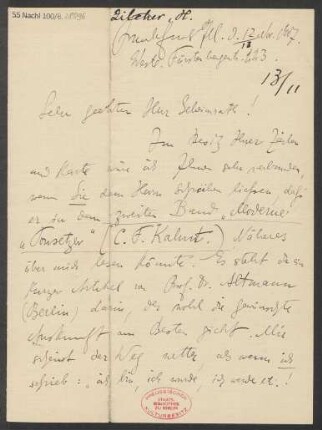 55 Nachl 100/B,
Zilcher, H.
Frankfurt a/M. D. 12 Nov. 1907
13/11
Sehr geehrter Herr Scheinrath!
Im Besitz Ihrer Zeilen
und Karte wäre ich Ihnen sehr verbunden,
wenn Sie dem Herrn schreiben liessen, daß
er in dem zweiten Band "Moderne
"Tonsetzer" (C. F. Kahnt.) Näheres
über mich lesen könnte. Es steht da ein
kurzer Artikel von Prof. Dr. Altmann
(Berlin) darin, der wohl die gewünschte
Auskunft am Besten giebt. Mir
scheint der Weg netter als wenn ich
schrieb: "ich bin, ich wurde, ich werde etc.!